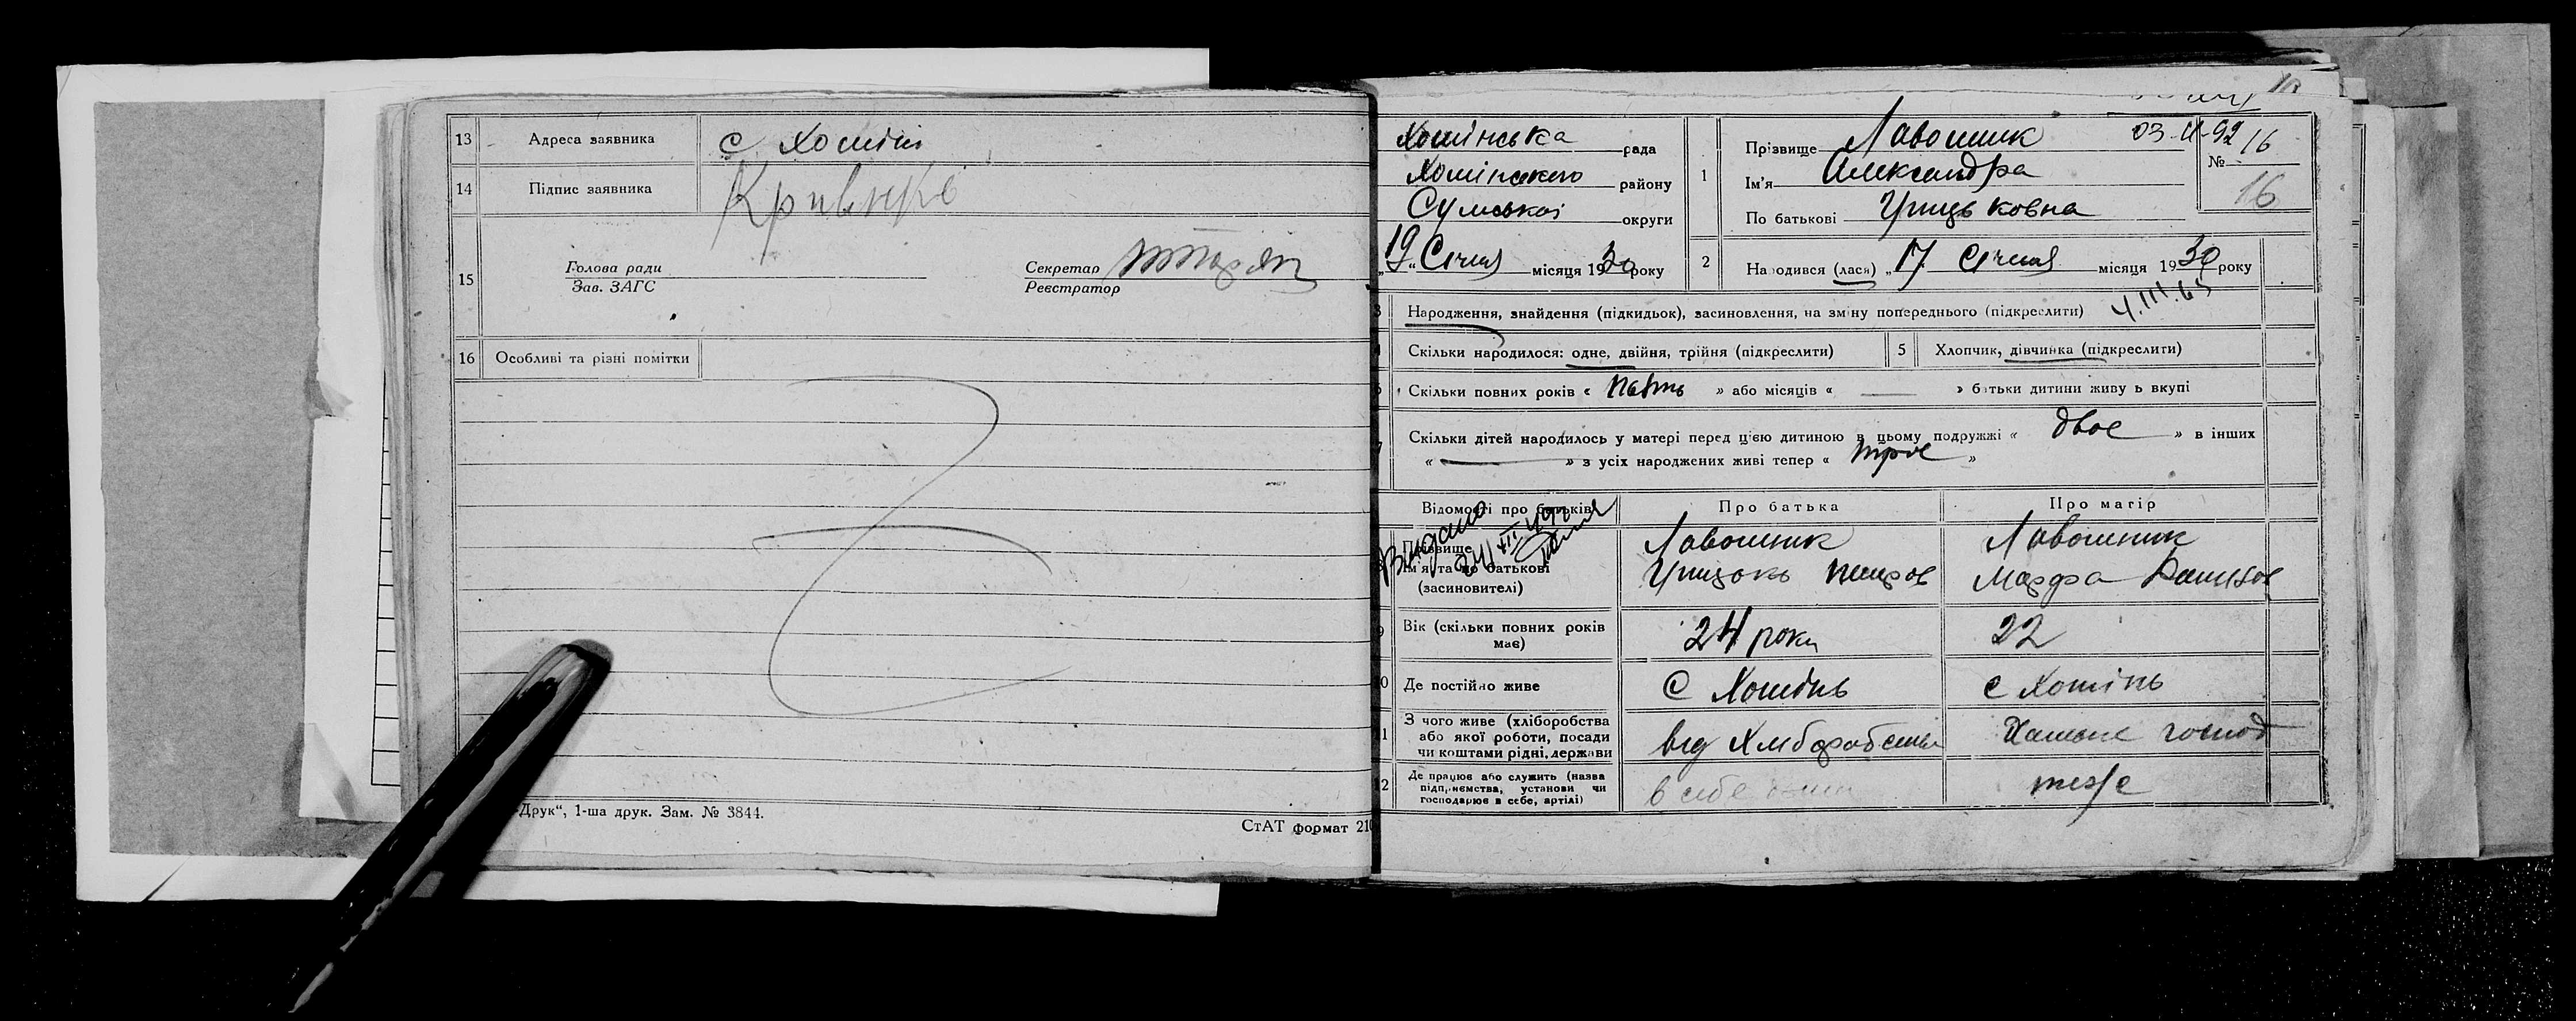 13 Адреса заявника с Хотінь
14 Підпис заявника
15 Голова ради
Зав. ЗАГС
Секретар
Реєстратор
16 Особливі та різні помітки
Друк“, 1-ша друк. Зам. № 3844.
СтАТ формат 210
Хотінська рада
Хотінського району
Сумської округи
„19“ Січня місяця 1930 року
1 Прізвище Лавошник
Ім'я Александра
По батькові Грицьковна
03-II-92
№ 16
16
2 Народився (лася) „17 Січня місяця 1930 року
4.III.65
3 Народження, знайдення (підкидьок), засиновлення, на зміну попереднього (підкреслити)
4 Скільки народилося: одне, двійня, трійня (підкреслити)
5 Хлопчик, дівчинка (підкреслити)
6 Скільки повних років « пять » або місяців « — » батьки дитини живуть вкупі
7 Скільки дітей народилось у матері перед цією дитиною в цьому подружжі « двое » в інших
« — » з усіх народжених живі тепер « трое »
Відомості про батьків Про батька Про матір
Видано
8 Прізвище Лавошник Лавошник
Ім'я та по батькові Грицько Петров Марфа
(засновителі)
9 Вік (скільки повних років має) 24 роки 22
10 Де постійно живе С Хотінь с Хотінь
11 З чого живе (хліборобства
або якої роботи, посади
чи коштами рідні, держави від Хліборобства Хатьнє господ
12 Де працює або служить (назва
підприємства, установи чи
господарює в себе, артілі) в себе теж/е